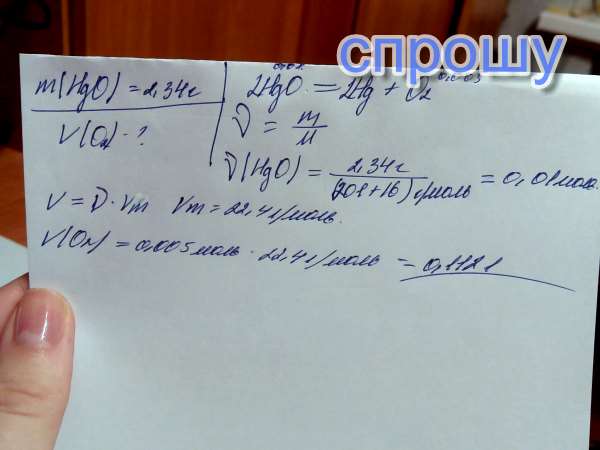 спрошу
m(HgO) = 2,34г
V(O₂) - ?
0,01
2HgO = 2Hg + O₂
ν = m/M
ν(HgO) = 2,34г/(201+16)г/моль = 0,01моль
V = ν · Vm Vm = 22,4л/моль.
V(O₂) = 0,005моль · 22,4л/моль = 0,112л